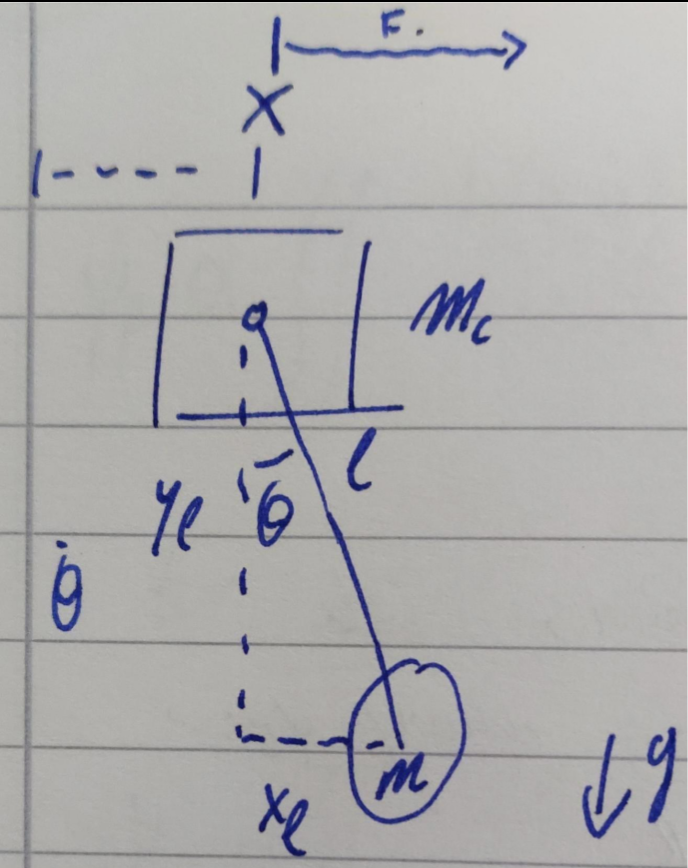 F.
X
m_c
l
y_l
θ
θ̇
m
x_l
g